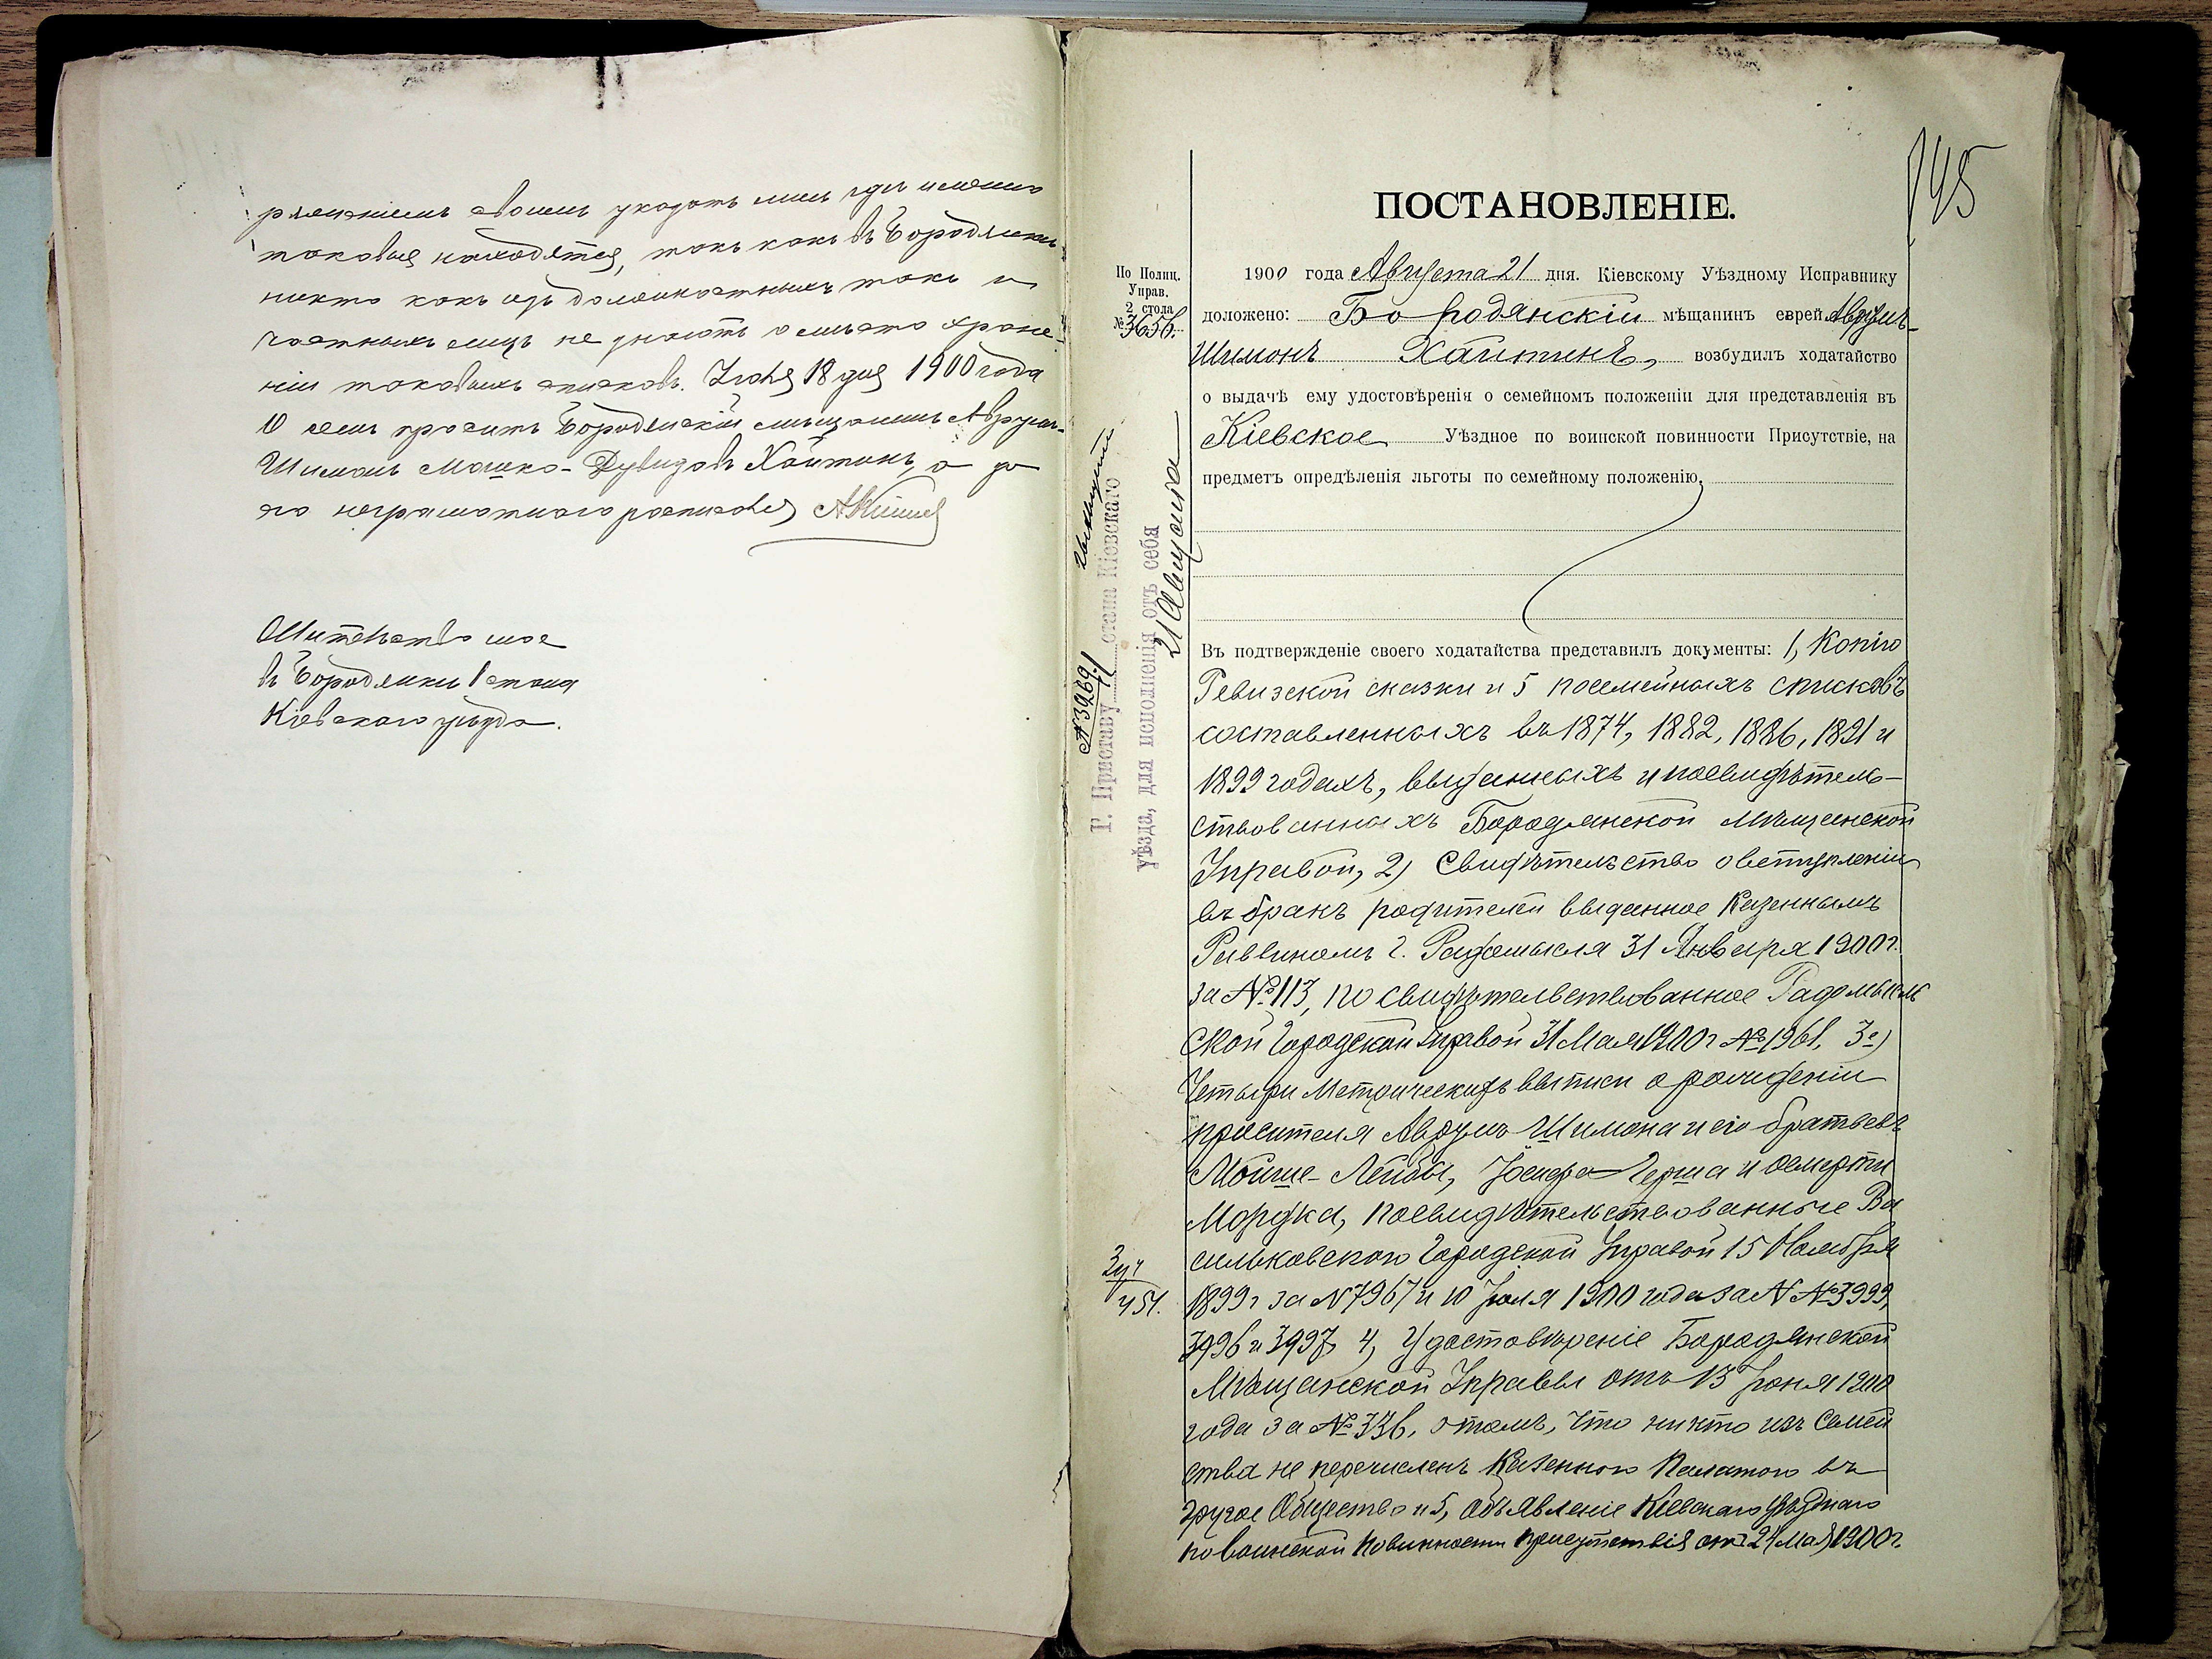 ряженіемъ своимъ указать мнѣ гдѣ именно
таковыя находятся, такъ какъ въ Бородянкѣ
никто какъ изъ должностныхъ такъ и
частныхъ лицъ не знаютъ о мѣстѣ хране-
ніи таковыхъ списковъ. Іюня 18 дня 1900 года
О семъ проситъ Бородянскій мѣщанинъ Аврумъ-
Шимонъ Мошко-Дувидовъ Хайтинъ, а за
его неграмотного росписался
Жительство мое
въ Бородянки 1 стана
Кіевскаго уѣзда.
145
ПОСТАНОВЛЕНІЕ.
По Полиц.
Управ.
2 стола
№ 3656.
1900 года Августа 21 дня. Кіевскому Уѣздному Исправнику
доложено: Бородянскій мѣщанинъ еврей Аврумъ-
Шимонъ Хаитинъ, возбудилъ ходатайство
о выдачѣ ему удостовѣренія о семейномъ положеніи для представленія въ
Кіевское Уѣздное по воинской повинности Присутствіе, на
предметъ опредѣленія льготы по семейному положенію.
Въ подтвержденіе своего ходатайства представилъ документы: 1, Копію
Ревизской сказки и 5 посемейныхъ списковъ
составленныхъ въ 1874, 1882, 1886, 1891 и
1899 годахъ, выданныхъ и посвидѣтель-
ствованныхъ Бородянской Мѣщанской
Управой, 2) Свидѣтельство о вступленіи
въ бракъ родителей выданное Казеннымъ
Раввиномъ г. Радомысля 31 Января 1900 г.
за № 113, посвидѣтельствованное Радомысль
ской Городской Управой 31 Мая 1900 г № 1961, 3)
Четыри Метрическихъ выписи о рожденіи
просителя Аврумъ-Шимона и его братьевъ
Мойше-Лейбы, Іосифа-Герша и о смерти
Мордка, посвидѣтельствованные Ва
сильковской Городской Управой 15 Ноября
1899 г за № 7967 и 10 Іюля 1900 года за № № 3999,
3996 и 3997, 4, Удостовѣреніе Бородянской
Мѣщанской Управы отъ 13 Іюня 1900
года за № 336, о томъ, что никто изъ семей
ства не перечисленъ Казенною Палатою въ
другое Общество и 5, Объявленіе Кіевскаго Уѣзднаго
по воинской повинности присутствія отъ 24 Мая 1900 г.
№ 3969.
Г. Приставу 1 стана Кіевскаго
уѣзда, для исполненія отъ себя
21 Августа